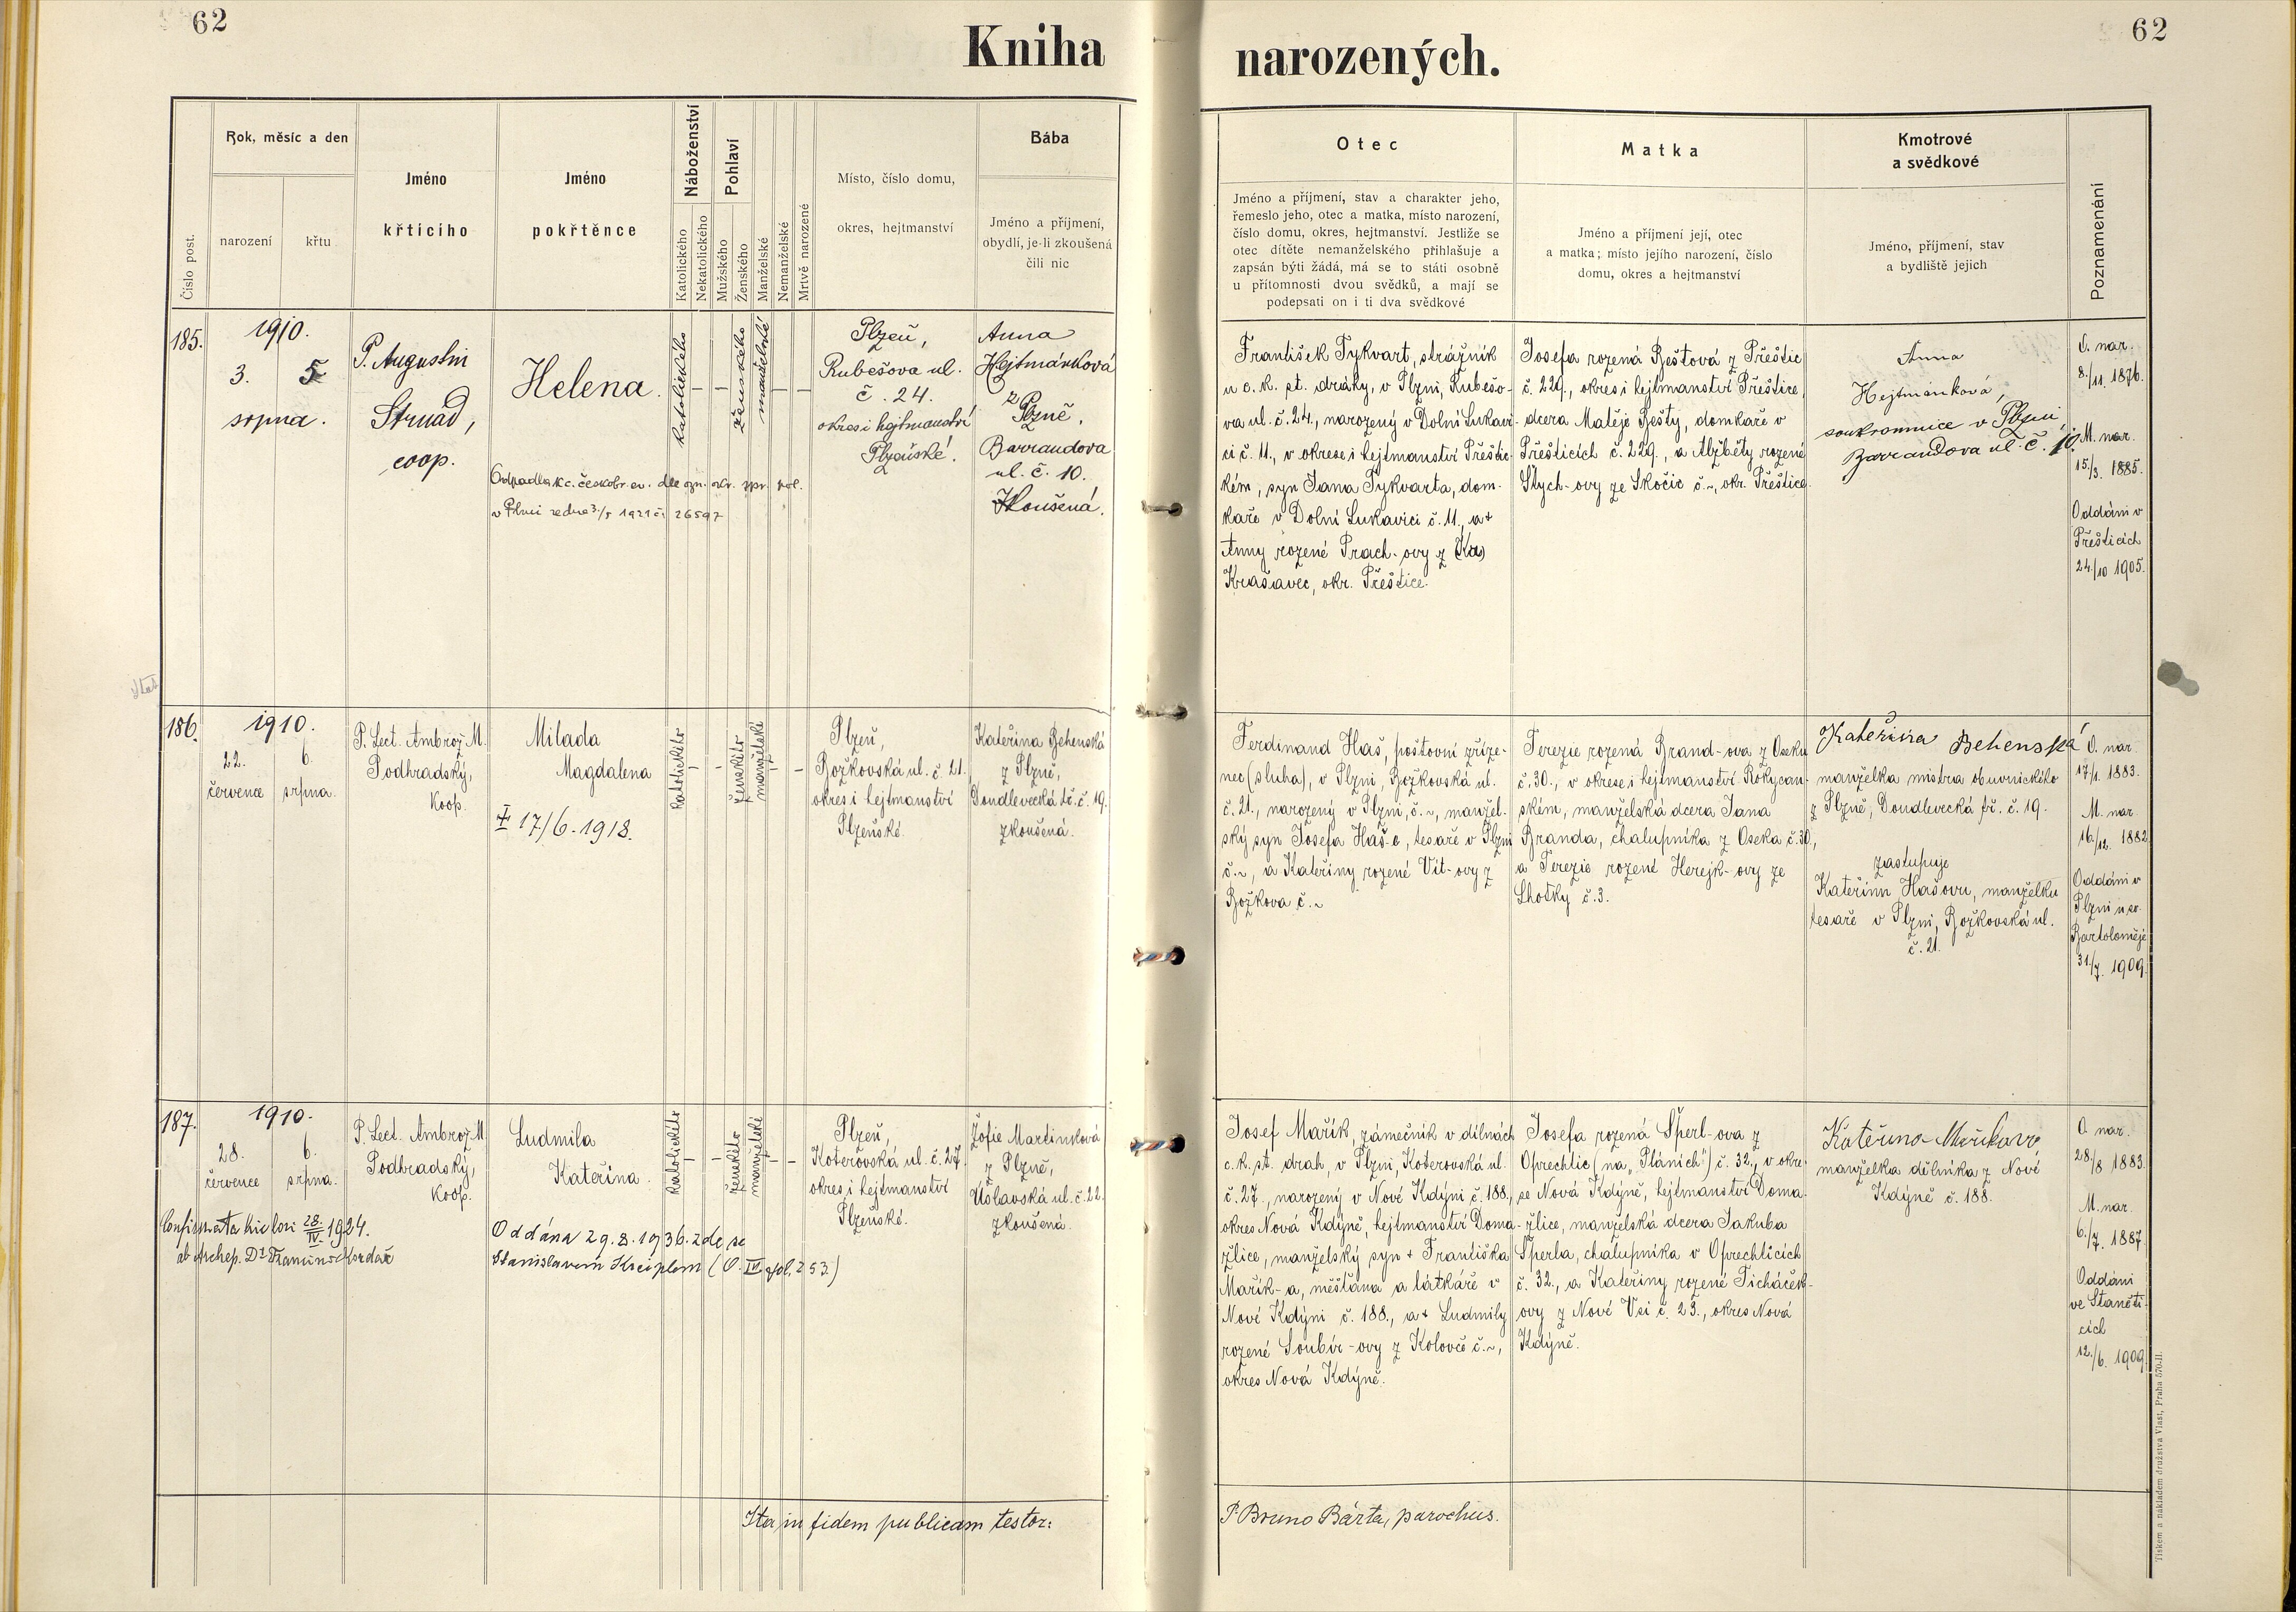 62
62
Kniha
narozených.
Číslo post.
Rok, měsíc a den
narození
křtu
Jméno
křtícího
Jméno
pokřtěnce
Náboženství
Katolického
Nekatolického
Pohlaví
Mužského
Ženského
Manželské
Nemanželské
Mrtvě narozené
Místo, číslo domu,
okres, hejtmanství
Bába
Jméno a příjmení,
obydlí, je-li zkoušená
čili nic
Otec
Jméno a příjmení, stav a charakter jeho,
řemeslo jeho, otec a matka, místo narození,
číslo domu, okres, hejtmanství. Jestliže se
otec dítěte nemanželského přihlašuje a
zapsán býti žádá, má se to státi osobně
u přítomnosti dvou svědků, a mají se
podepsati on i ti dva svědkové
Matka
Jméno a příjmení její, otec
a matka; místo jejího narození, číslo
domu, okres a hejtmanství
Kmotrové
a svědkové
Jméno, příjmení, stav
a bydliště jejich
Poznamenání
185.
1910.
3. 5
srpna.
P. Augustin
Strnad,
coop.
Helena.
Odpadla k c. českobr. ev. dle ozn. okr. zpr. pol.
v Plzni ze dne 3/5 1921 č. 26597
katolického
ženského
manželské
Plzeň,
Rubešova ul.
č. 24.
okres i hejtmanství
Plzeňské.
Anna
Hejtmánková
z
Plzně,
Barrandova
ul. č. 10.
Zkoušená.
František Tykvart, strážník
u c. k. st. dráhy, v Plzni, Rubešo-
va ul. č. 24., narozený v Dolní Lukavi-
ci č. 11., v okrese i hejtmanství Přeštic-
kém, syn Jana Tykvarta, dom-
kaře v Dolní Lukavici č. 11., a +
Anny rozené Prach-ovy z (Ka)
Krašavec, okr. Přeštice.
Josefa rozená Beštová z Přeštic
č. 229., okres i hejtmanství Přeštice,
dcera Matěje Bešty, domkaře v
Přešticích č. 229., a Alžběty rozené
Stych-ovy ze Skočic č. ~, okr. Přeštice.
Anna
Hejtmánková,
soukromnice v Plzni,
Barrandova ul. č. 10.
O. nar.
8./11. 1876.
M. nar.
15./3. 1885.
Oddáni v
Přešticích
24./10 1905.
186.
1910.
22. 6.
července srpna.
P. Lect. Ambrož M.
Podhradský,
koop.
Milada
Magdalena
† 17/6. 1918.
katolického
ženského
manželské
Plzeň,
Božkovská ul. č. 21.
okres i hejtmanství
Plzeňské.
Kateřina Behenská
z Plzně,
Doudlevecká tř. č. 19.
zkoušená.
Ferdinand Haš, poštovní zříze-
nec (sluha), v Plzni, Božkovská ul.
č. 21., narozený v Plzni, č. ~, manžel-
ský syn Josefa Haš-e, tesaře v Plzni
č. ~, a Kateřiny rozené Vít-ovy z
Božkova č. ~
Terezie rozená Brand-ova z Oseku
č. 30., v okrese i hejtmanství Rokycan-
ském, manželská dcera Jana
Branda, chalupníka z Oseka č. 30.,
a Terezie rozené Herejk-ovy ze
Lhotky č. 3.
Kateřina Behenská
manželka mistra obuvnického
z Plzně, Doudlevecká tř. č. 19.
zastupuje
Kateřinu Hašovu, manželku
tesaře v Plzni, Božkovská ul.
č. 21.
O. nar.
17/1. 1883.
M. nar.
16./12. 1882
Oddáni v
Plzni u sv.
Bartoloměje
31./7. 1909.
187.
1910.
28. 6.
července srpna.
P. Lect. Ambrož M.
Podhradský,
koop.
Confirmata hic loci 28./IV. 1924.
Ludmila
Kateřina.
Oddána 29.8.1936. zde se
Stanislavem (O. IV. fol. 253.)
katolického
ženského
manželské
Plzeň,
Koterovská ul. č. 27.
okres i hejtmanství
Plzeňské.
Žofie Martínková
z Plzně,
Úslavská ul. č. 22.
zkoušená.
Josef Mařík, zámečník v dílnách
c. k. st. drah, v Plzni, Koterovská ul.
č. 27., narozený v Nové Kdýni č. 188.,
okres Nová Kdýně, hejtmanství Doma-
žlice, manželský syn + Františka
Mařík-a, měšťana a látkáře v
Nové Kdýni č. 188., a + Ludmily
rozené Soubír-ovy z Kolovče č. ~,
okres Nová Kdýně.
Josefa rozená Šperl-ova z
Oprechtic (na „Pláních") č. 32., v okre-
se Nová Kdýně, hejtmanství Doma-
žlice, manželská dcera Jakuba
Šperla, chalupníka v Oprechticích
č. 32., a Kateřiny rozené Ticháček-
ovy z Nové Vsi č. 23., okres Nová
Kdýně.
Kateřina Maříková
manželka dělníka z Nové
Kdýně č. 188.
O. nar.
28./8 1883.
M. nar.
6./7. 1887.
Oddáni
ve Staněti-
cích
12./6. 1909.
Ita in fidem publicam testor:
P. Bruno Bárta, parochus.
Tiskem a nákladem družstva Vlast, Praha 570-II.